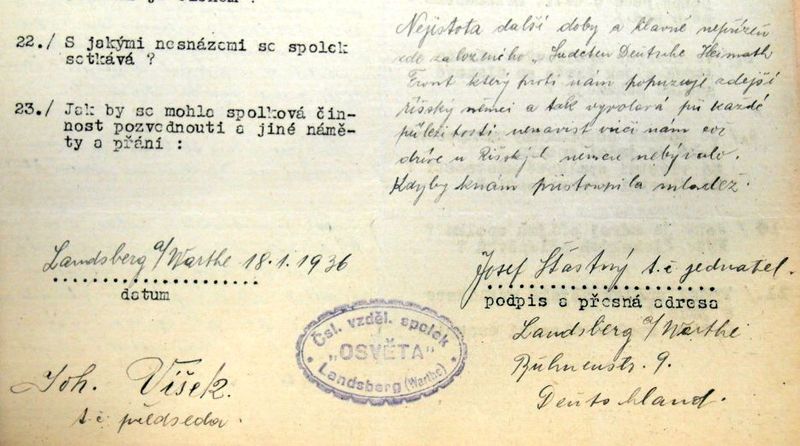 22./ S jakými nesnázemi se spolek
setkává ?
Nejistota další doby a hlavně nepřízeň
zde založeného „Sudeten Deutsche Heimath
Front který proti nám popuzuje zdejší
Říšský němci a tak vyvolává při každé
příležitosti nenávist vůči nám
dříve u Říšských němců nebývalo.
23./ Jak by se mohla spolková čin-
nost pozvednouti a jiné námě-
ty a přání :
Kdyby k nám přistoupila mladež.
Landsberg a/Warthe 18.1.1936
datum
Josef Šťástný t.č. jednatel.
podpis a přesná adresa
Landsberg a/Warthe
9.
Deutschland.
Čsl. vzděl. spolek
„OSVĚTA"
Landsberg (Warthe)
Joh. Víšek.
t.č. předseda.